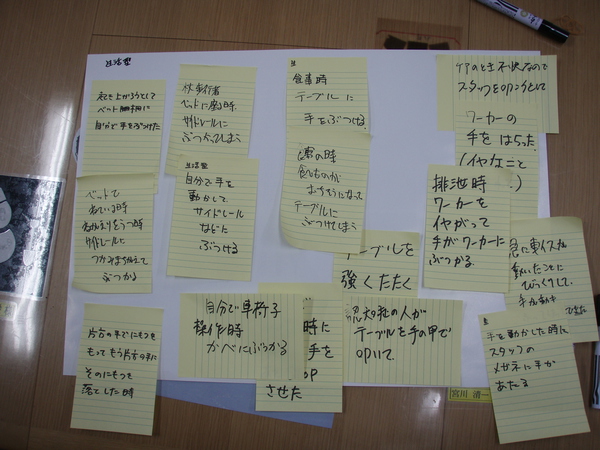 生活型
起き上がろうとして
ベット柵に
自分で手をぶつけた
伏
歩行者
ベットに座る時
サイドレールに
ぶつかってしまう
生
食事時
テーブルに
手をぶつける
不快なので
スタッフを叩こうとして
ワーカーの
手をはらった
(イヤなこと
ベットで
ねている時
ねがえりをうつ時
サイドレールに
つかみまちがえて
ぶつかる
生活型
自分で手を
動かして
サイドレール
などに
ぶつける
の時
食べものが
おちそうになって
テーブルに
ぶつけてしまう
テーブルを
強くたたく
排泄時
ワーカーを
イヤがって
手がワーカーに
ぶつかる
急に車イスが
動いたことに
びっくりして、
手が
片方の手でにもつを
もってもう片方の手に
そのにもつを
落とした時
自分で車椅子
操作時
かべにぶつかる
時に
手を
させた
認知症の人が
テーブルを手の甲で
叩いて
生
手を動かした時に
スタッフの
メガネに手が
あたる
宮川 清一